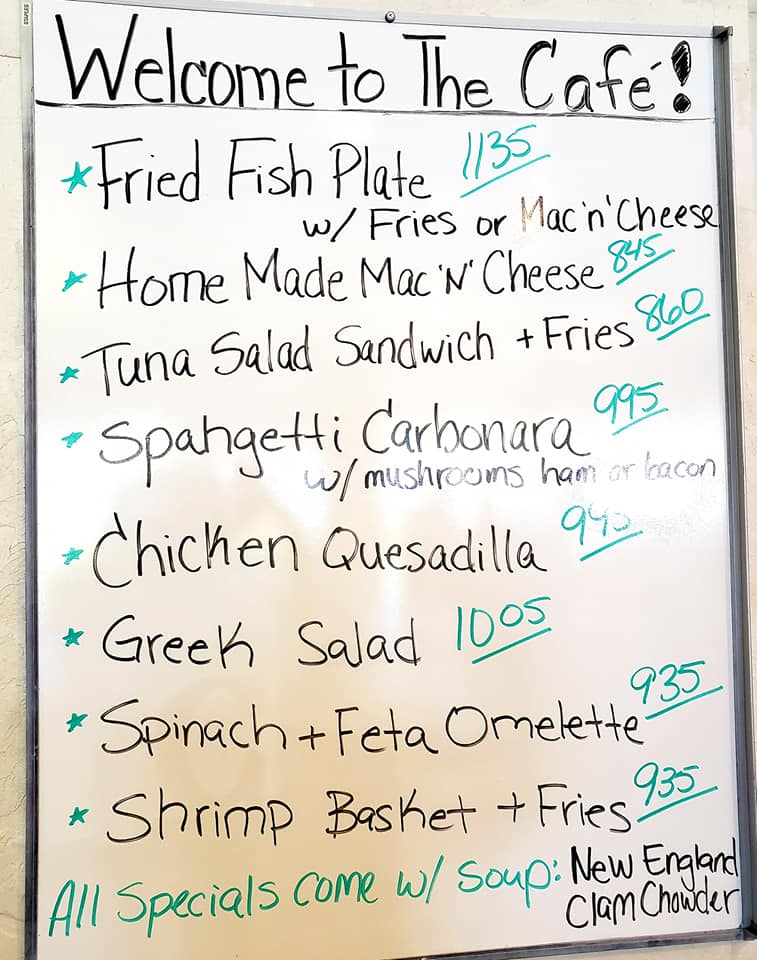 Welcome to The Café!
* Fried Fish Plate 1135
w/ Fries or Mac'n'Cheese
* Home Made Mac'N'Cheese 845
* Tuna Salad Sandwich + Fries 860
* Spahgetti Carbonara 995
w/ mushrooms ham or bacon
* Chicken Quesadilla 945
* Greek Salad 1005
* Spinach + Feta Omelette 935
* Shrimp Basket + Fries 935
All Specials come w/ Soup: New England
Clam Chowder